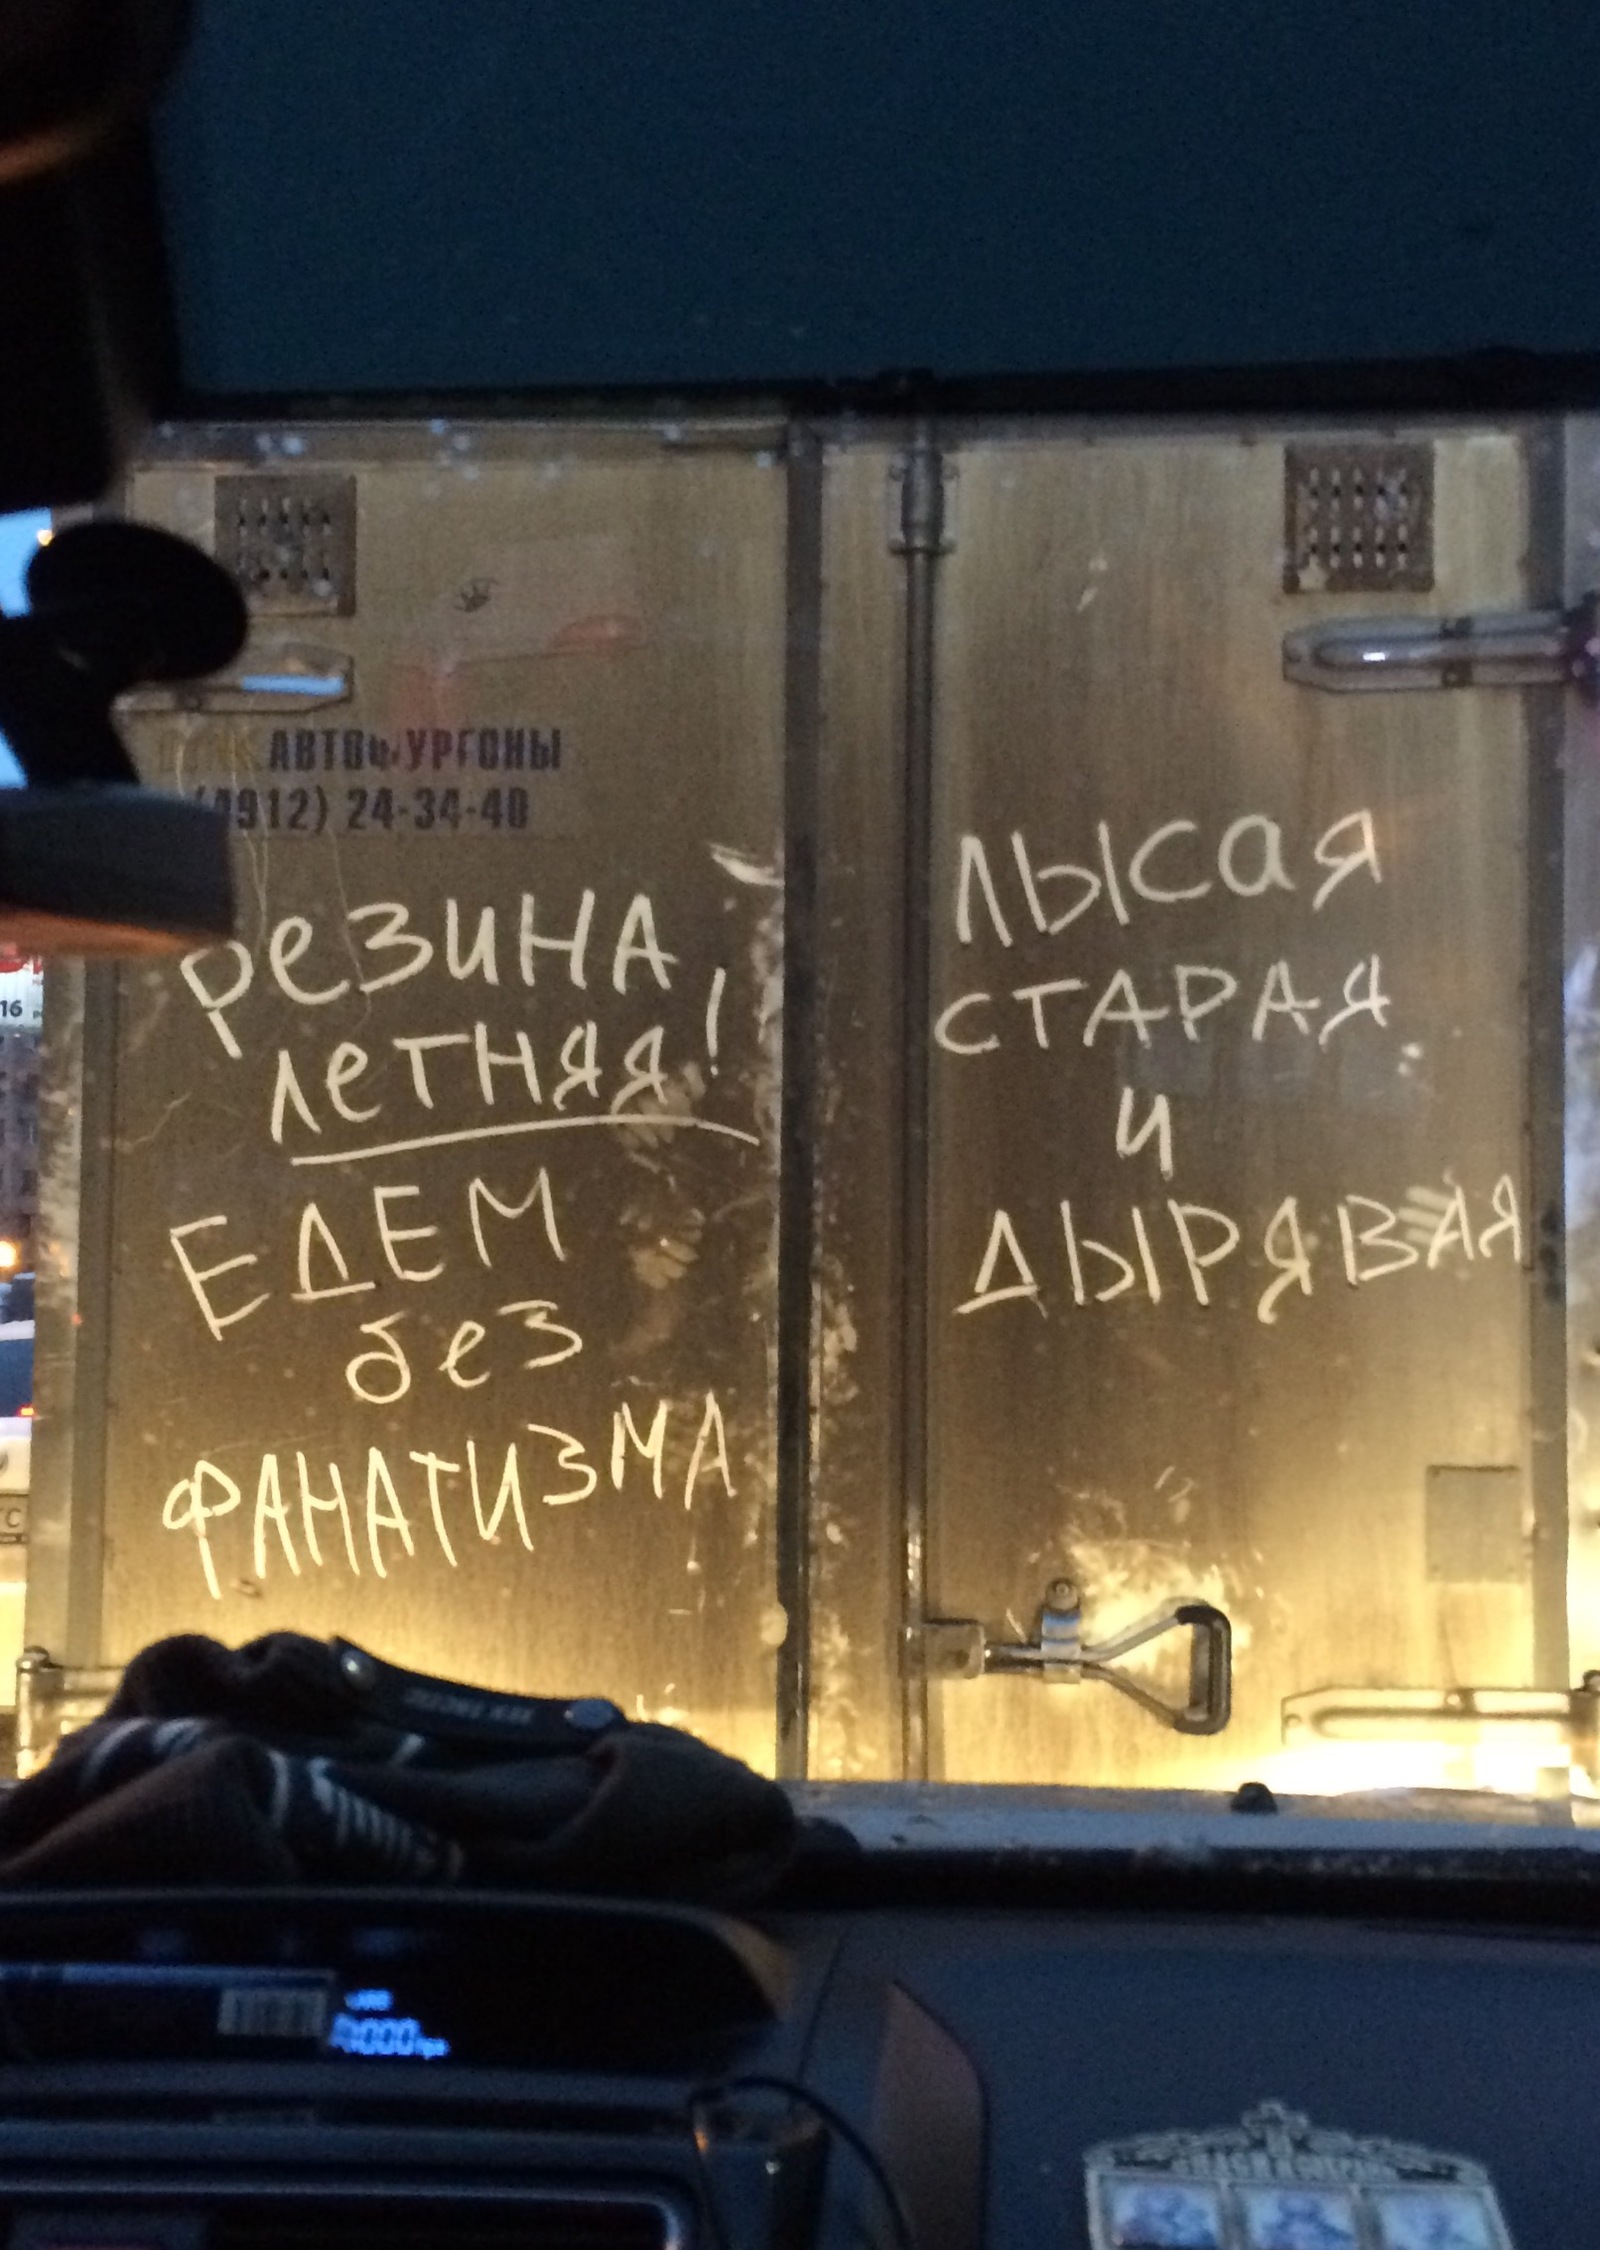 АВТОФУРГОНЫ
(4912) 24-34-40
РеЗИНА
летняя!
ЕДЕМ
без
ФАНАТИЗМА
лысая
СТАРАЯ
и
ДЫРЯВАЯ
16